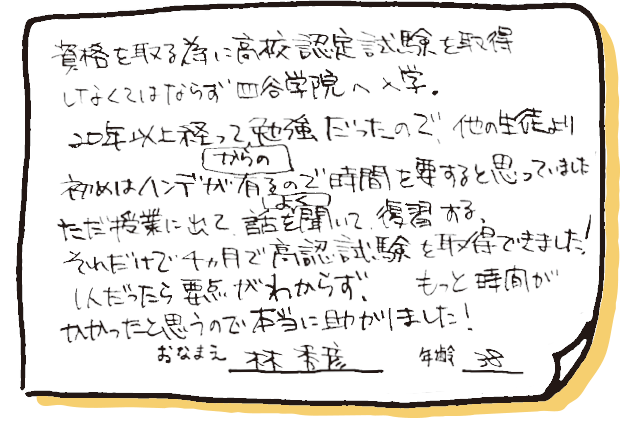 資格を取る為に高校認定試験を取得
しなくてはならず四谷学院へ入学。
20年以上経って
からの
勉強だったので、他の生徒より
初めはハンデが有るので時間を要すると思っていました
ただ授業に出て、話を
よく
聞いて、復習する、
それだけで4ヵ月で高認試験を取得できました!
1人だったら要点がわからず、もっと時間が
かかったと思うので本当に助かりました!
おなまえ 林 秀彦 年齢 38